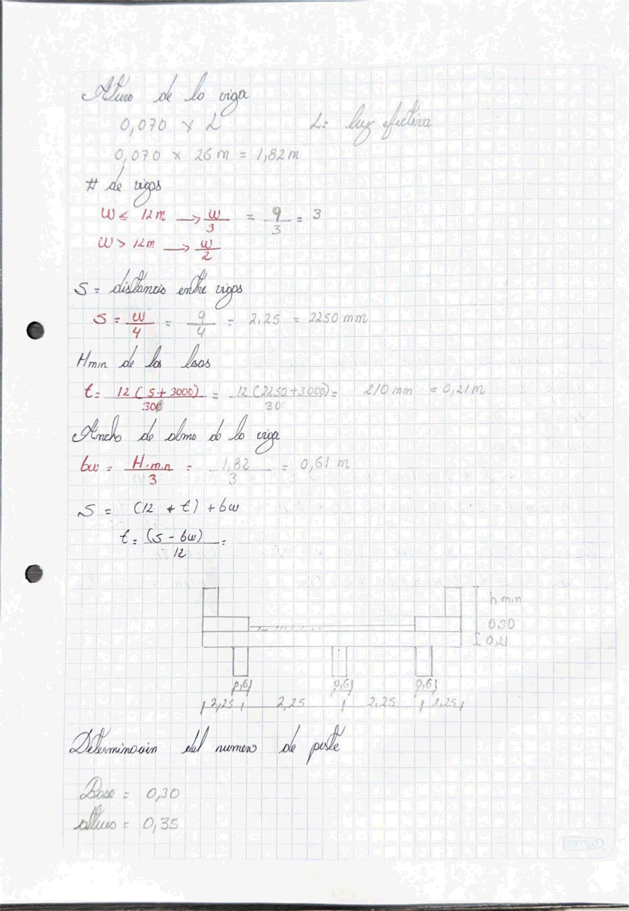 Altura de la viga
0,070 x L L: luz efectiva
0,070 x 26 m = 1,82 m
# de vigas
W ≤ 12 m → W/3 = 9/3 = 3
W > 12 m → W/2
S = distancia entre vigas
S = W/4 = 9/4 = 2,25 = 2250 mm
Hmin de la losa
t = 12(S+3000)/300 = 12(2250+3000)/30 = 210 mm = 0,21 m
Ancho de alma de la viga
bw = Hmin/3 = 1,82/3 = 0,61 m
S = (12 * t) + bw
t = (S - bw)/12 =
h min
0,30
0,21
0,61 0,61 0,61
2,25 2,25 2,25 2,25
Determinacion del numero de poste
Base = 0,30
altura = 0,35